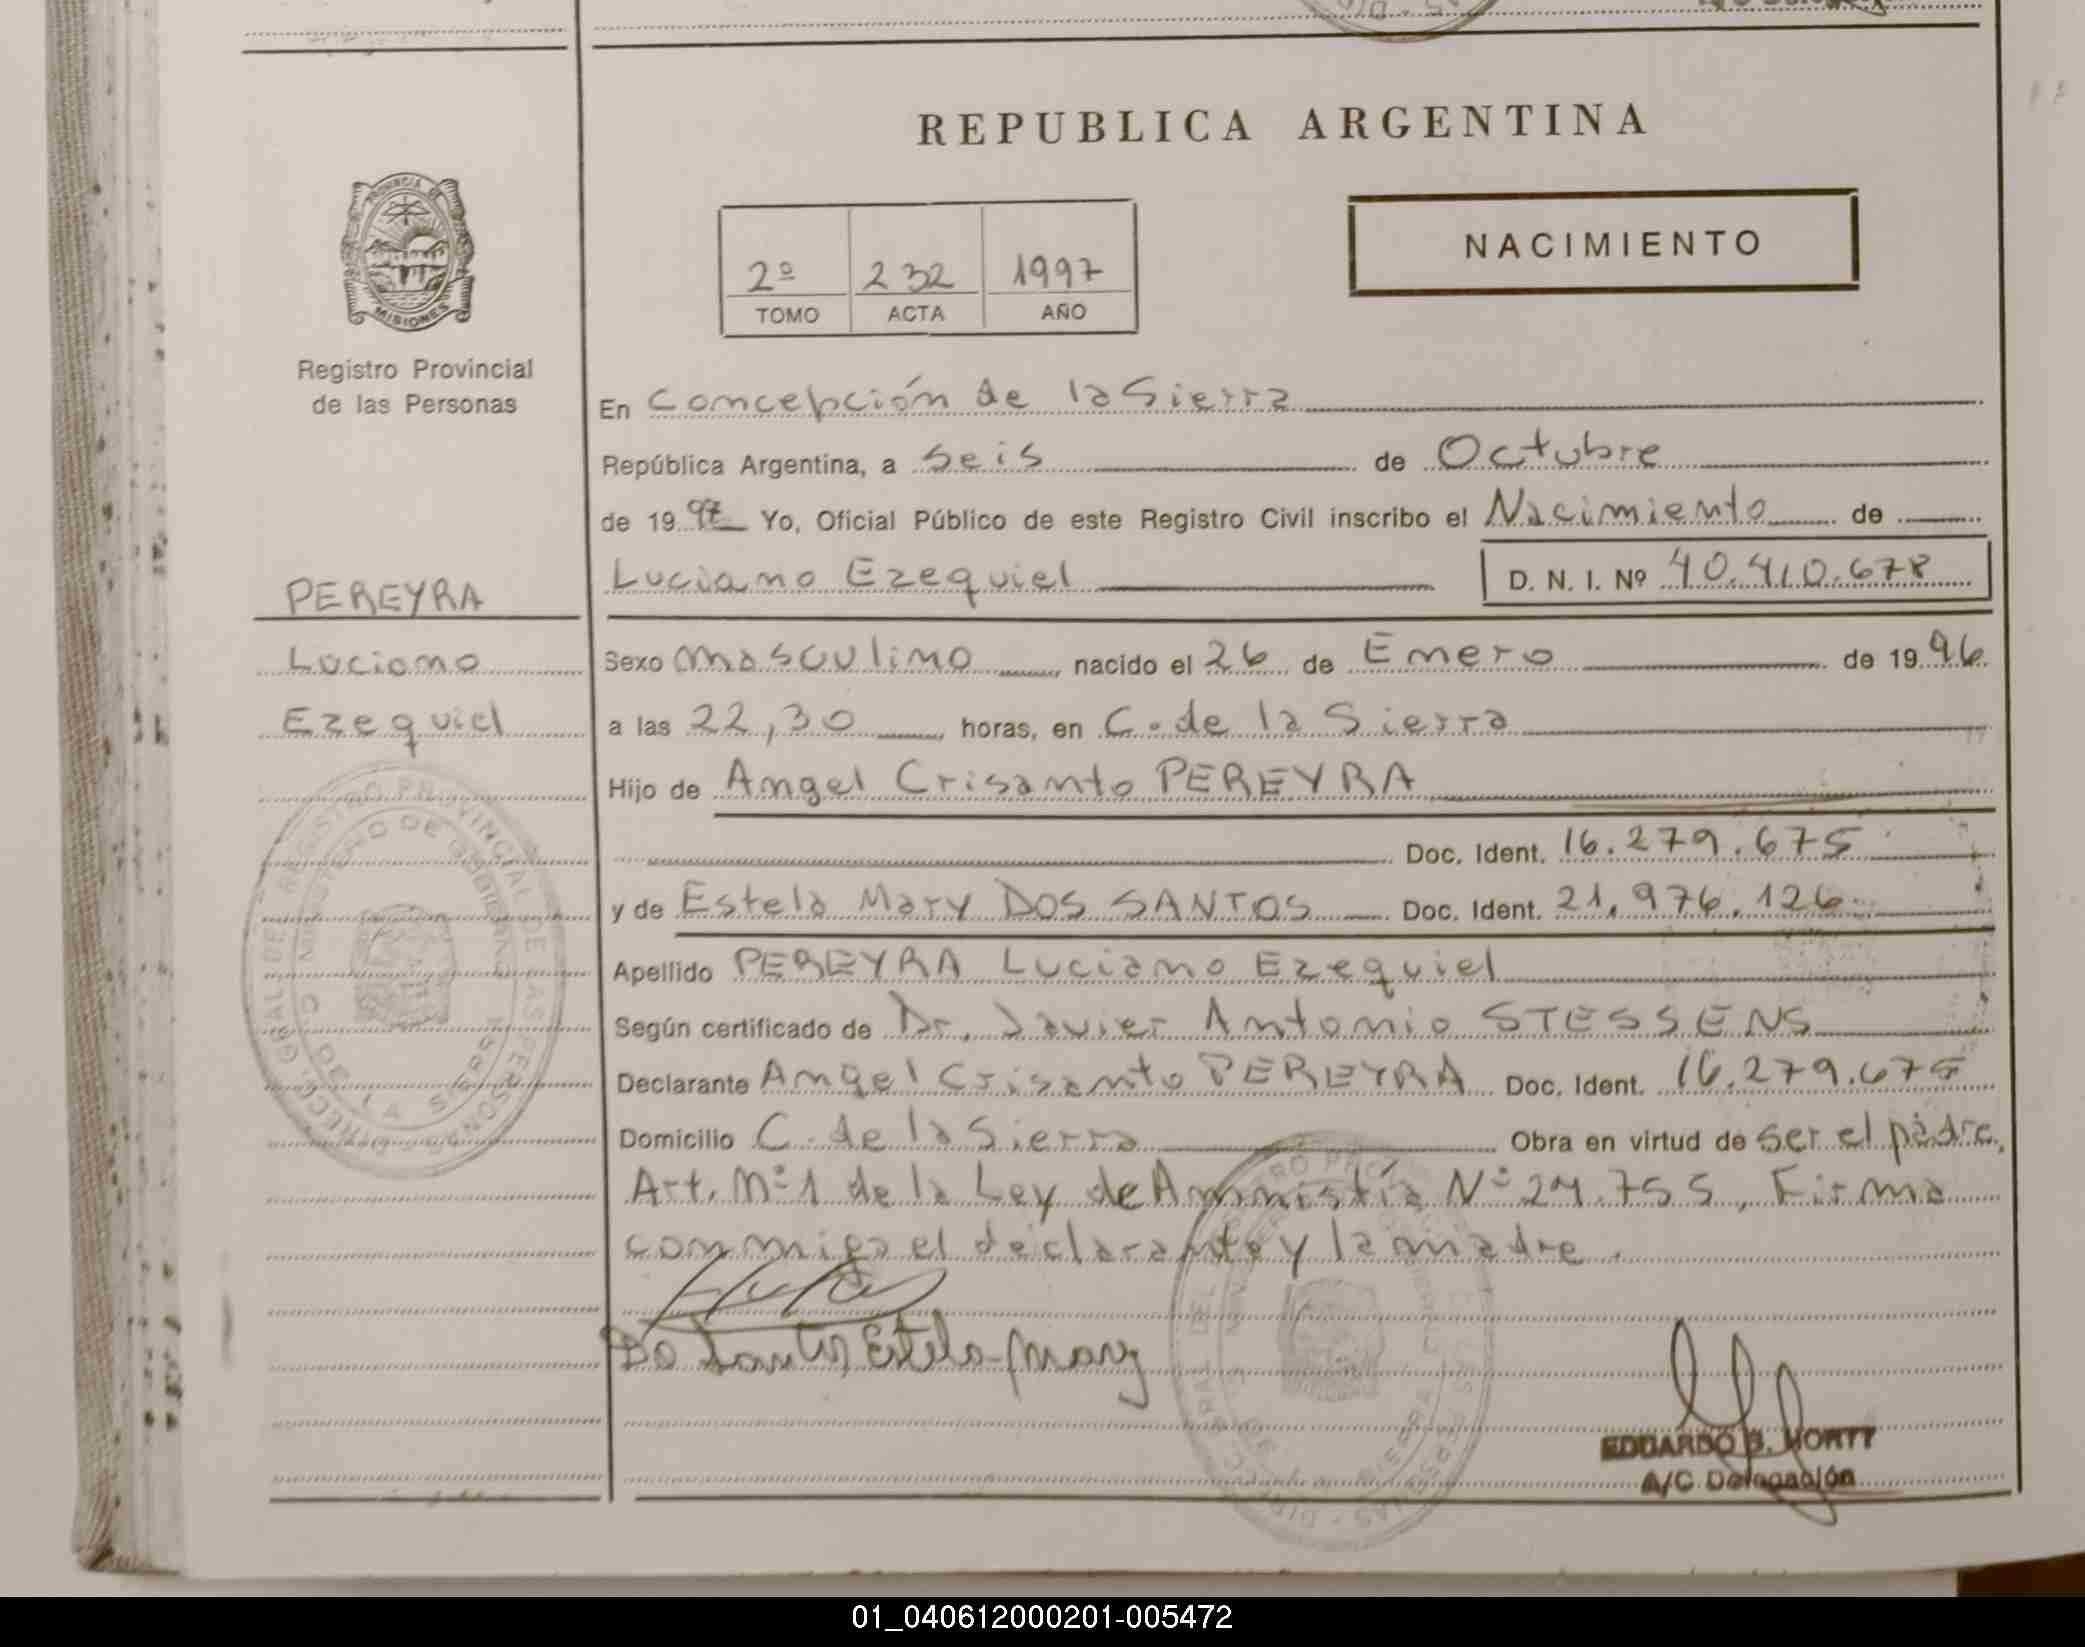 REPUBLICA ARGENTINA
PROVINCIA DE
MISIONES
Registro Provincial
de las Personas
2º 232 1997
TOMO ACTA AÑO
NACIMIENTO
En Concepción de la Sierra
República Argentina, a Seis de Octubre
de 1997 Yo, Oficial Público de este Registro Civil inscribo el Nacimiento de
Luciano Ezequiel D. N. I. Nº 40.410.678
PEREYRA
Luciano
Ezequiel
Sexo masculino nacido el 26 de Enero de 1996
a las 22,30 horas, en C. de la Sierra
Hijo de Angel Crisanto PEREYRA
Doc. Ident. 16.279.675
y de Estela Mary DOS SANTOS Doc. Ident. 21.976.126
Apellido PEREYRA Luciano Ezequiel
Según certificado de Dr. Javier Antonio STESSENS
Declarante Angel Crisanto PEREYRA Doc. Ident. 16.279.675
Domicilio C. de la Sierra Obra en virtud de ser el padre,
Art. Nº 1 de la Ley de Amnistía Nº 24.755, Firma
conmigo el declarante y la madre.
Do Santos Estela Mary
EDUARDO
A/C Delegación
01_040612000201-005472